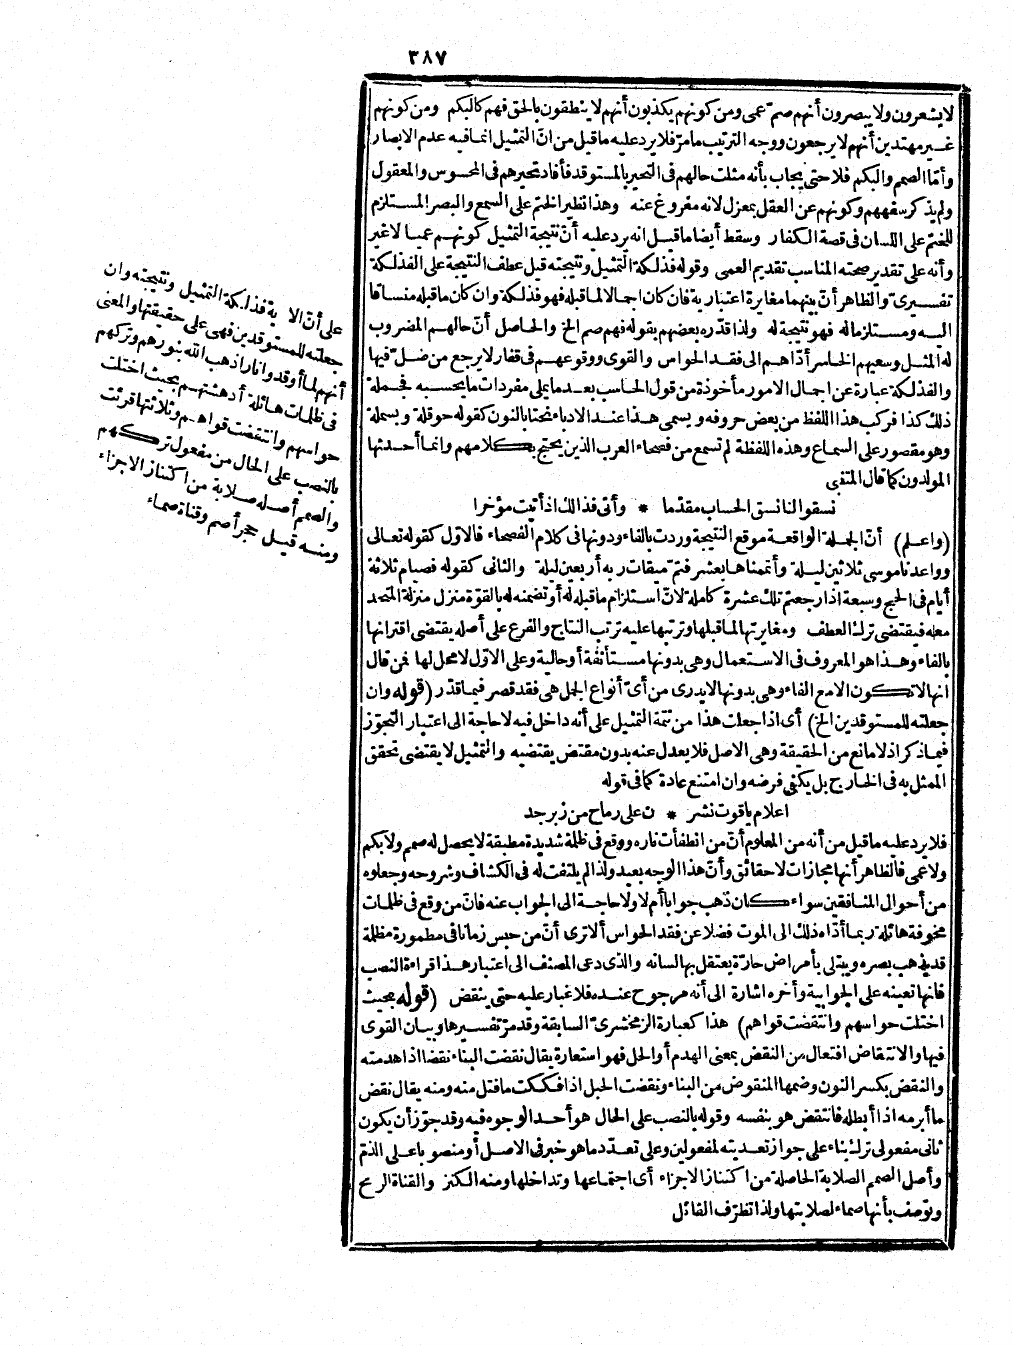 ٣٨٧
لا يشعرون ولا يبصرون أنهم صم عمى ومن كونهم يكذبون أنهم لا ينطقون بالحق فهم كالبكم ومن كونهم
غير مهتدين أنهم لا يرجعون ووجه الترتيب ما مرّ فلا يرد عليه ما قيل من انّ التمثيل انما فيه عدم الابصار
وأمّا الصمم والبكم فلا حتى يجاب بأنه مثلت حالهم فى التحير بالمستوقد فأفاد تحيرهم فى المحسوس والمعقول
ولم يذكر سفههم وكونهم عن العقل بمعزل لانه مفروغ عنه وهذا نظير الختم على السمع والبصر المستلزم
للختم على اللسان فى قصة الكفار وسقط أيضا ما قيل انه يرد عليه أنّ نتيجة التمثيل كونهم عميا لا غير
وأنه على تقدير صحته المناسب تقديم العمى وقوله فذلكة التمثيل ونتيجته قيل عطف النتيجة على الفذلكة
تفسيرىّ والظاهر أنّ بينهما مغايرة اعتبارية فان كان اجمالا لما قبله فهو فذلكة وان كان ما قبله منساقا
اليه ومستلزما له فهو نتيجة له ولذا قدّره بعضهم بقوله فهم صم الخ والحاصل أنّ حالهم المضروب
له المثل وسعيهم الخاسر أدّاهم الى فقد الحواس والقوى ووقوعهم فى قفار لا يرجع من ضلّ فيها
والفذلكة عبارة عن اجمال الامور مأخوذة من قول الحاسب بعد ما يملى مفردات ما يحسبه فجملة
ذلك كذا فركب هذا اللفظ من بعض حروفه ويسمى هذا عند الادباء نحتا بالنون كقوله حوقلة وبسملة
وهو مقصور على السماع وهذه اللفظة لم تسمع من فصحاء العرب الذين يحتج بكلامهم وانما أحدثها
المولدون كما قال المتنبى
نسقوا لنا نسق الحساب مقدّما * وأتى فذالك اذ أتيت مؤخرا
(واعلم) أنّ الجملة الواقعة موقع النتيجة وردت بالفاء ودونها فى كلام الفصحاء فالاوّل كقوله تعالى
وواعدنا موسى ثلاثين ليلة وأتممناها بعشر فتم ميقات ربه أربعين ليلة والثانى كقوله فصيام ثلاثة
أيام فى الحج وسبعة اذا رجعتم تلك عشرة كاملة لانّ استلزام ما قبله له أو تضمنه له بالقوّة منزل منزلة المتحد
معه فيقتضى ترك العطف ومغايرتها لما قبلها وترتبها عليه ترتب النتاج والفرع على أصله يقتضى اقترانها
بالفاء وهذا هو المعروف فى الاستعمال وهى بدونها مستأنفة أو حالية وعلى الاوّل لا محل لها فمن قال
انها لا تكون الا مع الفاء وهى بدونها لا يدرى من أىّ أنواع الجمل هى فقد قصر فيما قدّر (قوله وان
جعلته للمستوقدين الخ) أى اذا جعلت هذا من تتمة التمثيل على أنه داخل فيه لا حاجة الى اعتبار التجوّز
فيما ذكر اذ لا مانع من الحقيقة وهى الاصل فلا يعدل عنه بدون مقتض يقتضيه والتمثيل لا يقتضى تحقق
الممثل به فى الخارج بل يكفى فرضه وان امتنع عادة كما فى قوله
اعلام ياقوت نشر * ن على رماح من زبرجد
فلا يرد عليه ما قيل من أنه من المعلوم أنّ من انطفأت ناره ووقع فى ظلمة شديدة مطبقة لا يحصل له صمم ولا بكم
ولا عمى فالظاهر أنها مجازات لا حقائق وأنّ هذا الوجه بعيد ولذا لم يلتفت له فى الكشاف وشروحه وجعلوه
من أحوال المنافقين سواء كان ذهب جوابا أم لا ولا حاجة الى الجواب عنه فانّ من وقع فى ظلمات
مخوفة هائلة ربما أدّاه ذلك الى الموت فضلا عن فقد الحواس ألا ترى أنّ من حبس زمانا فى مطمورة مظلمة
قد يذهب بصره ويبتلى بأمراض حارّة يعتقل بها لسانه والذى دعى المصنف الى اعتبار هذا قراءة النصب
فانها تعينه على الجوابية وأخره اشارة الى أنه مرجوح عنده فلا غبار عليه حتى ينقض (قوله بحيث
اختلت حواسهم وانتقضت قواهم) هذا كعبارة الزمخشرىّ السابقة وقد مرّ تفسيرها وبيان القوى
فيها والانتقاض افتعال من النقض بمعنى الهدم أو الحل فهو استعارة يقال نقضت البناء نقضا اذا هدمته
والنقض بكسر النون وضمها المنقوض من البناء ونقضت الحبل اذا فككت ما فتل منه ومنه يقال نقض
ما أبرمه اذا أبطله فانتقض هو بنفسه وقوله بالنصب على الحال هو أحد الوجوه فيه وقد جوّز أن يكون
ثانى مفعولى ترك بناء على جواز تعديته لمفعولين وعلى تعدّد ما هو خبر فى الاصل أو منصوبا على الذمّ
وأصل الصمم الصلابة الحاصلة من اكتناز الاجزاء أى اجتماعها وتداخلها ومنه الكنز والقناة الرمح
وتوصف بأنها صماء لصلابتها ولذا تظرّف القائل
على أنّ الآية فذلكة التمثيل ونتيجته وان
جعلته للمستوقدين فهى على حقيقتها والمعنى
أنهم لما أوقدوا نارا ذهب الله بنورهم وتركهم
فى ظلمات هائلة أدهشتهم بحيث اختلت
حواسهم وانتقضت قواهم وثلاثتها قرئت
بالنصب على الحال من مفعول تركهم
والصمم أصله صلابة من اكتناز الاجزاء
ومنه قيل حجر أصم وقناة صماء